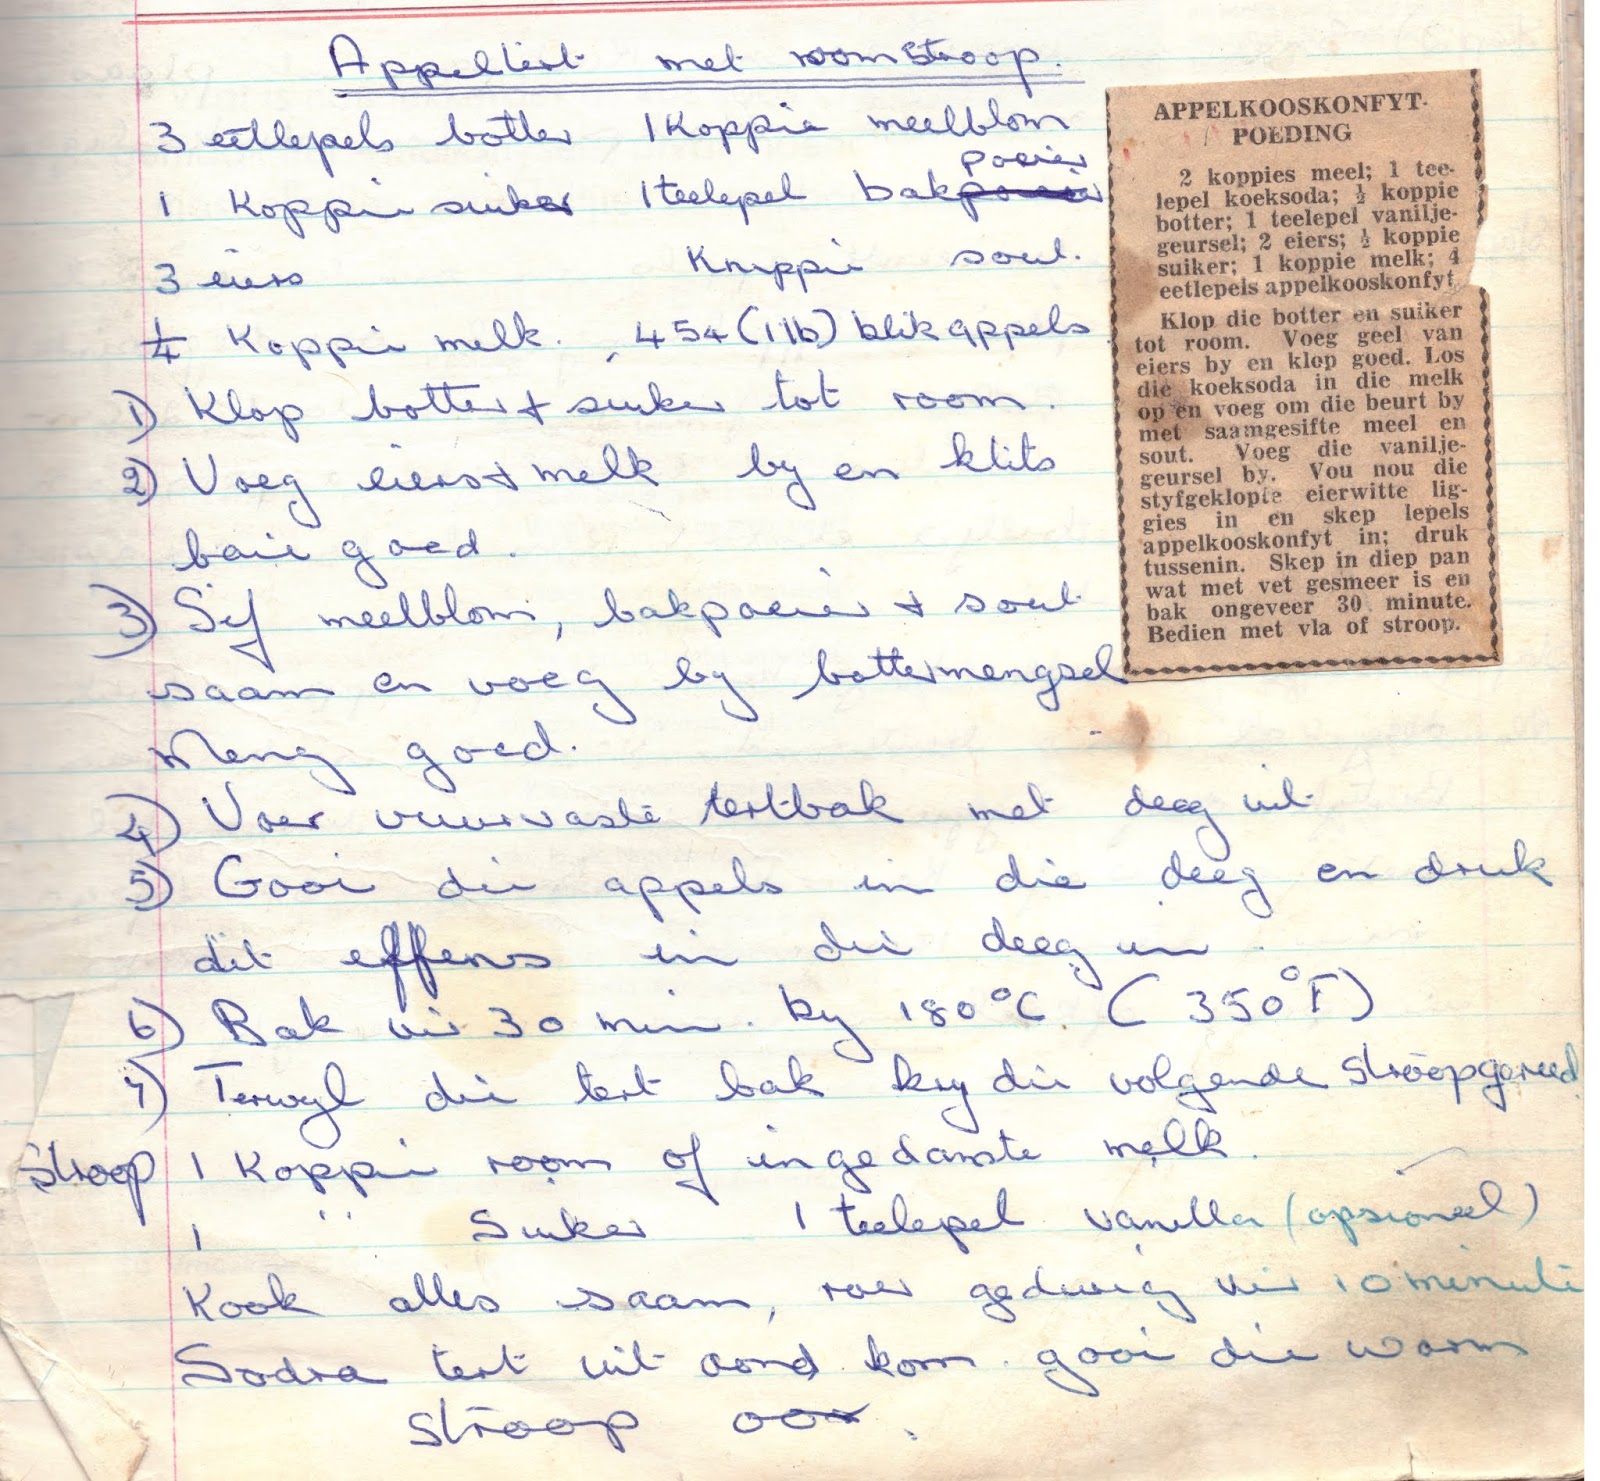 Appeltert met roomstroop.
3 eetlepels botter 1 Koppie meelblom
1 Koppie suiker 1 teelepel bakpoeier
3 eiers Knippie sout.
1/4 Koppie melk. 454 (1 lb) blik appels
1) Klop botter + suiker tot room.
2) Voeg eiers + melk by en klits
baie goed.
3) Sif meelblom, bakpoeier + sout
saam en voeg by bottermengsel
Meng goed.
4) Voer vuurvaste tertbak met deeg uit
5) Gooi die appels in die deeg en druk
dit effens in die deeg in.
6) Bak vir 30 min. by 180°C (350°F)
7) Terwyl die tert bak kry die volgende stroop gereed
Stroop 1 Koppie room of ingedamste melk.
1 " Suiker 1 teelepel vanilla (opsioneel)
Kook alles saam, roer gedurig vir 10 minute
Sodra tert uit oond kom gooi die warm
stroop oor.
APPELKOOSKONFYT-
POEDING
2 koppies meel; 1 tee-
lepel koeksoda; ½ koppie
botter; 1 teelepel vanilje-
geursel; 2 eiers; ½ koppie
suiker; 1 koppie melk; 4
eetlepels appelkooskonfyt
Klop die botter en suiker
tot room. Voeg geel van
eiers by en klop goed. Los
die koeksoda in die melk
op en voeg om die beurt by
met saamgesifte meel en
sout. Voeg die vanilje-
geursel by. Vou nou die
styfgeklopte eierwitte lig-
gies in en skep lepels
appelkooskonfyt in; druk
tussenin. Skep in diep pan
wat met vet gesmeer is en
bak ongeveer 30 minute.
Bedien met vla of stroop.